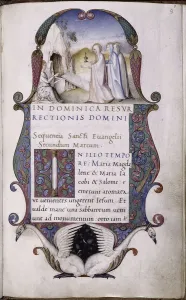 IN DOMINICA RESVR
RECTIONIS DOMINI
Sequentia Sancti Evangelii
Secundum Marcum.
IN ILLO TEMPO
RE: Maria Magda
lene & Maria Ia
cobi & Salome e
merunt aromata,
ut venientes ungerent Iesum. Et
valde mane una sabbatorum veni
unt ad monumentum orto iam s